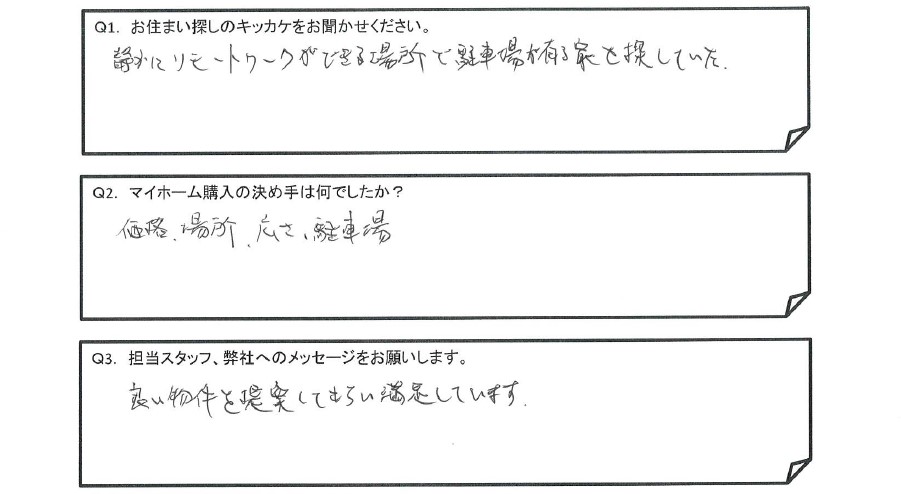 Q1. お住まい探しのキッカケをお聞かせください。
静かにリモートワークができる場所で駐車場が有る家を探していた.
Q2. マイホーム購入の決め手は何でしたか？
価格、場所、広さ、駐車場
Q3. 担当スタッフ、弊社へのメッセージをお願いします。
良い物件を提案してもらい満足しています.